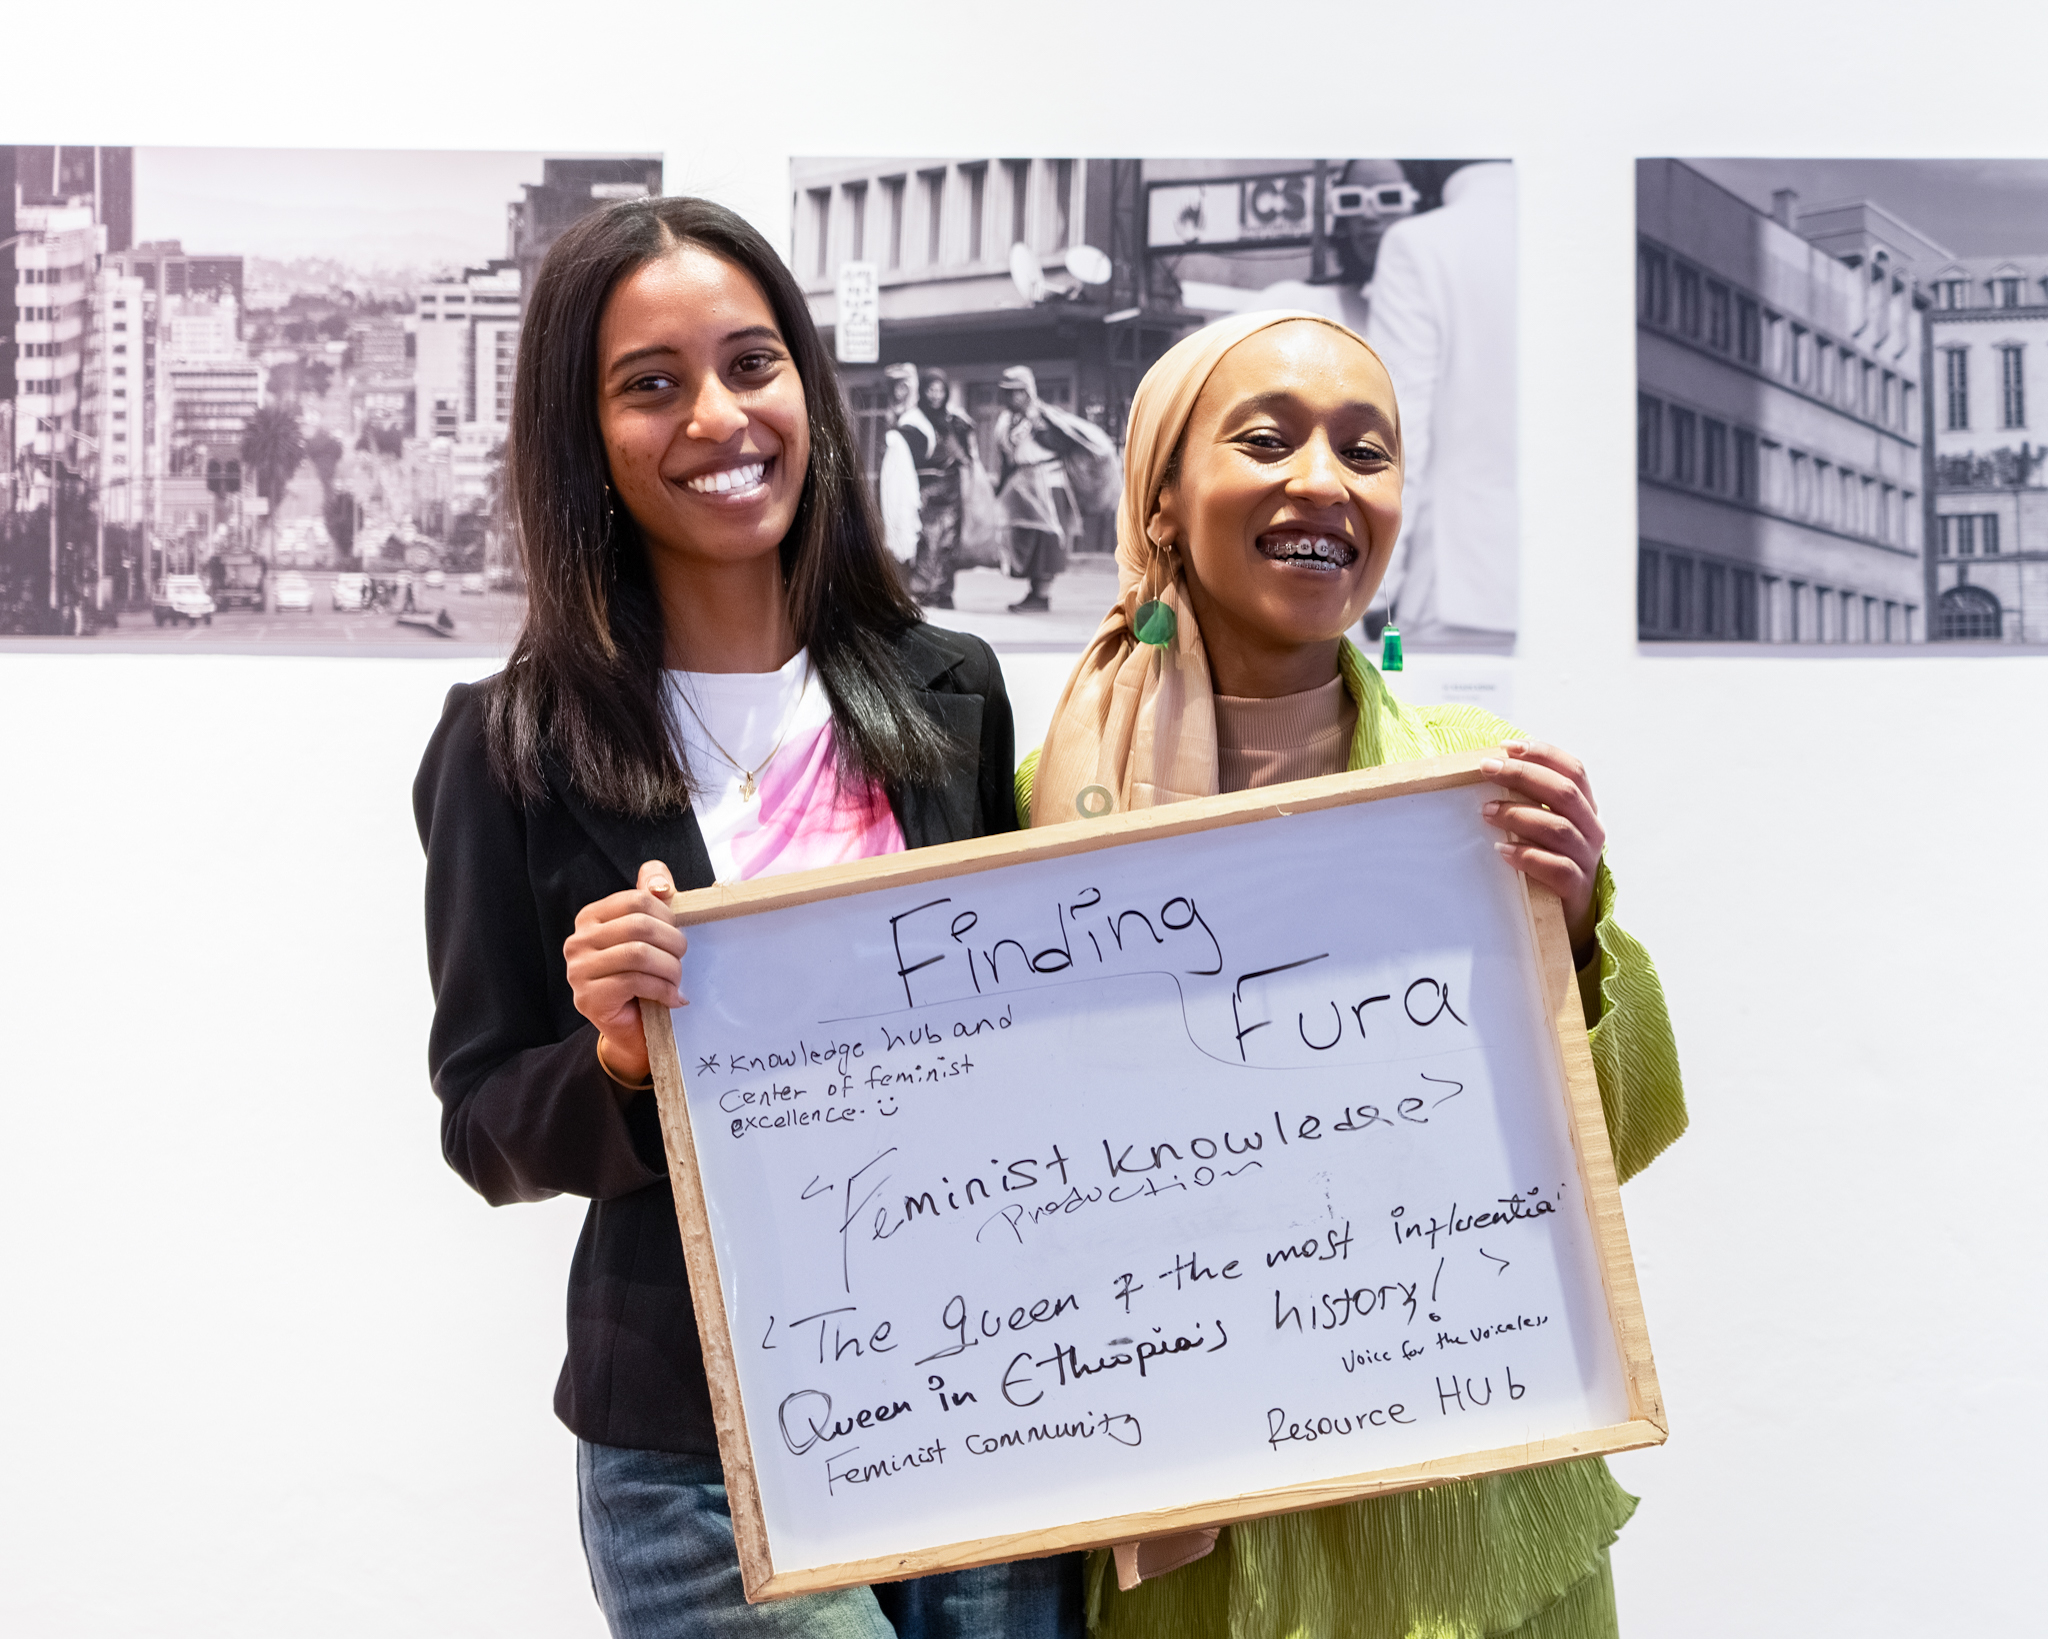 ICS
Finding
Fura
* Knowledge hub and
Center of feminist
excellence. :)
< Feminist Knowledge >
Production
< The Queen & the most influential
Queen in Ethiopia's history! >
Voice for the Voiceless
Feminist community
Resource HUb